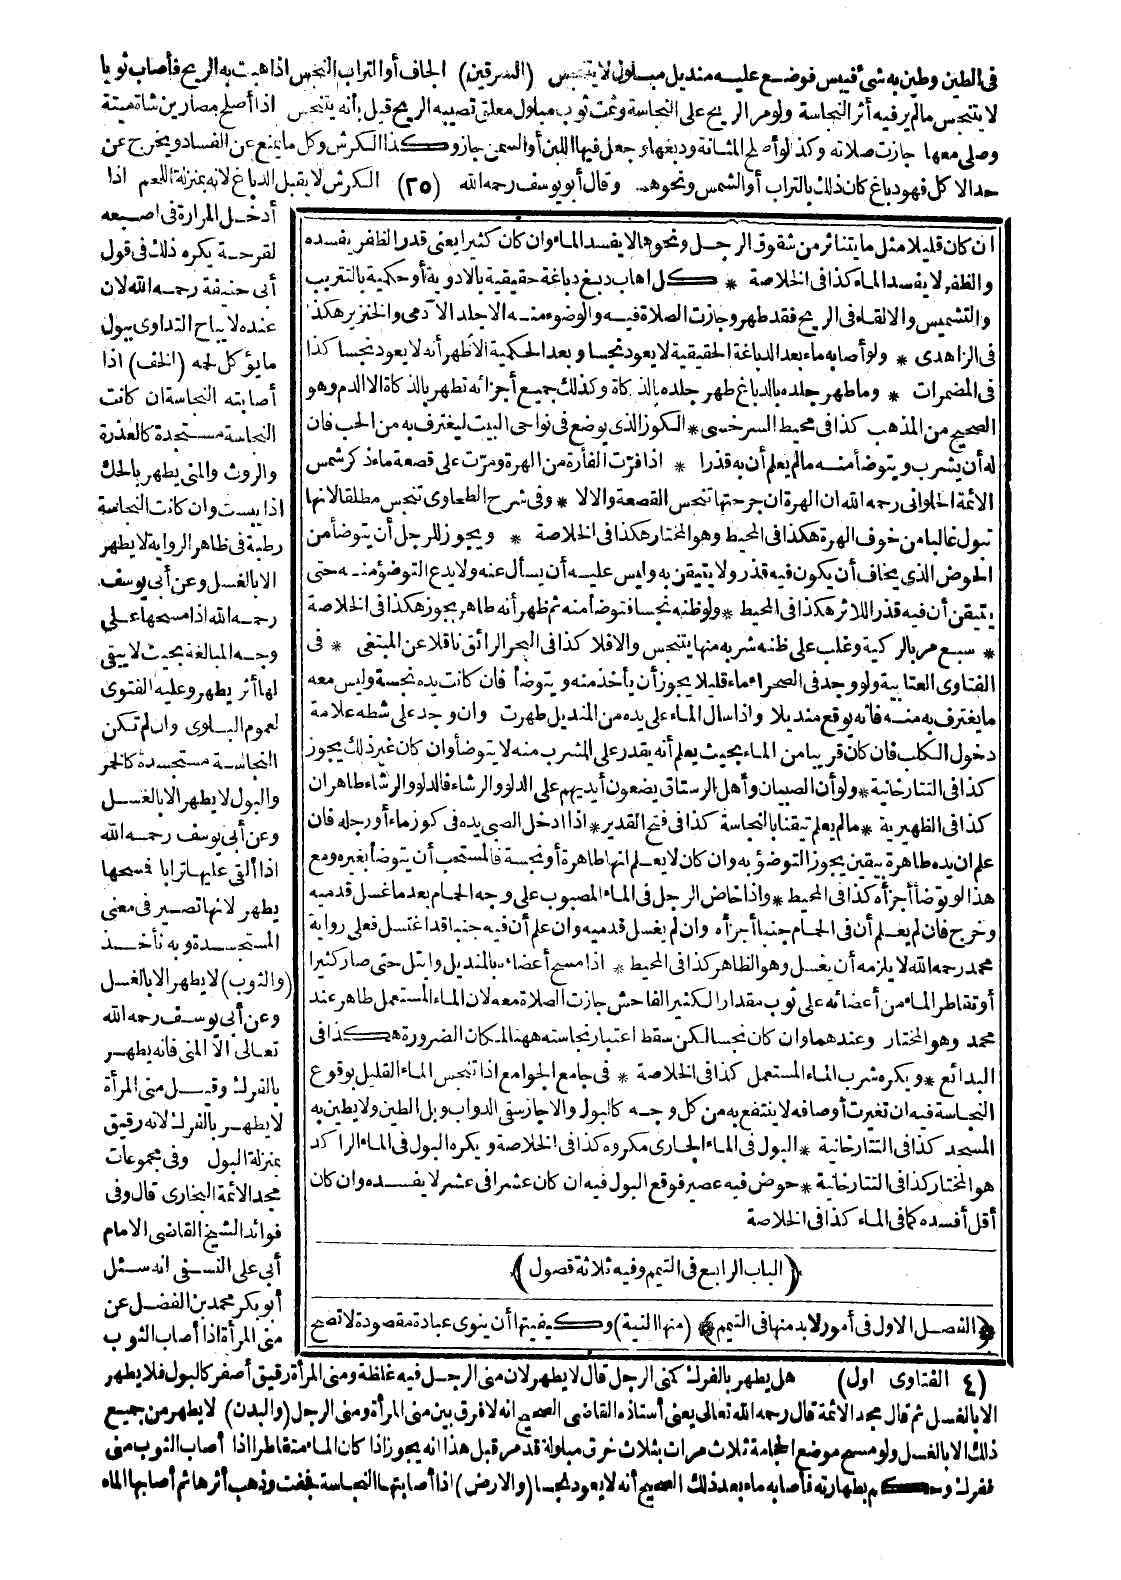 فى الطين وطين به شئ فيبس فوضع عليه منديل مبلول لا يتنجس (السرقين) الجاف أو التراب النجس اذا هبت به الريح فأصاب ثوبا
لا يتنجس مالم ير فيه أثر النجاسة ولو مر الريح على النجاسة وثمت ثوب مبلول معلق تصيبه الريح قيل بأنه يتنجس اذا أصلح مصارين شاة ميتة
وصلى معها جازت صلاته وكذا لو أصلح المثانة ودبغها وجعل فيها اللبن أو السمن جاز وكذا الكرش وكل ما يمنع عن الفساد ويخرج عن
حد الاكل فهو دباغ كان ذلك بالتراب أو الشمس ونحوهما وقال أبو يوسف رحمه الله (٢٥) الكرش لا يقبل الدباغ لانه بمنزلة اللحم اذا
أدخل المرارة فى اصبعه
لقرحة يكره ذلك فى قول
أبى حنيفة رحمه الله لان
عنده لا يباح التداوى ببول
ما يؤكل لحمه (الخف) اذا
أصابته النجاسة ان كانت
النجاسة مستجدة كالعذرة
والروث والمنى يطهر بالحك
اذا يبست وان كانت النجاسة
رطبة فى ظاهر الرواية لا يطهر
الا بالغسل وعن أبى يوسف
رحمه الله اذا مسحها على
وجه المبالغة بحيث لا يبقى
لها أثر يطهر وعليه الفتوى
لعموم البلوى وان لم تكن
النجاسة مستجسدة كالخمر
والبول لا يطهر الا بالغسل
وعن أبى يوسف رحمه الله
اذا ألقى عليها ترابا فمسحها
يطهر لانها تصير فى معنى
المستجسدة وبه نأخذ
(والثوب) لا يطهر الا بالغسل
وعن أبى يوسف رحمه الله
تعالى الا المنى فانه يطهر
بالفرك وقيل منى المرأة
لا يطهر بالفرك لانه رقيق
بمنزلة البول وفى مجموعات
مجد الائمة البخارى قال وفى
فوائد الشيخ القاضى الامام
أبى على النسفى انه سئل
أبو بكر محمد بن الفضل عن
منى المرأة اذا أصاب الثوب
ان كان قليلا مثل ما يتناثر من شقوق الرجل ونحوها لا يفسد الماء وان كان كثيرا يعنى قدر الظفر يفسده
والظفر لا يفسد الماء كذا فى الخلاصة * كل اهاب دبغ دباغة حقيقية بالادوية أو حكمية بالتتريب
والتشميس والالقاء فى الريح فقد طهر وجازت الصلاة فيه والوضوء منه الا جلد الآدمى والخنزير هكذا
فى الزاهدى * ولو أصابه ماء بعد الدباغة الحقيقية لا يعود نجسا وبعد الحكمية الاظهر أنه لا يعود نجسا كذا
فى المضمرات * وما طهر جلده بالدباغ طهر جلده بالذكاة وكذلك جميع أجزائه تطهر بالذكاة الا الدم وهو
الصحيح من المذهب كذا فى محيط السرخسى * الكوز الذى يوضع فى نواحى البيت ليغترف به من الحب فان
له أن يشرب ويتوضأ منه مالم يعلم أن به قذرا * اذا فرت الفأرة من الهرة ومرت على قصعة ماء ذكر شمس
الائمة الحلوانى رحمه الله ان الهرة ان جرحتها تنجس القصعة والا لا * وفى شرح الطحاوى تنجس مطلقا لانها
تبول غالبا من خوف الهرة هكذا فى المحيط وهو المختار هكذا فى الخلاصة * ويجوز للرجل أن يتوضأ من
الحوض الذى يخاف أن يكون فيه قذر ولا يتيقن به وليس عليه أن يسأل عنه ولا يدع التوضؤ منه حتى
يتيقن أن فيه قذر اللاثر هكذا فى المحيط * ولو ظنه نجسا فتوضأ منه ثم ظهر أنه طاهر يجوز هكذا فى الخلاصة
* سبع مر بالركية وغلب على ظنه شربه منها يتنجس والا فلا كذا فى البحر الرائق ناقلا عن المبتغى * فى
الفتاوى العتابية ولو وجد فى الصحراء ماء قليلا يجوز أن يأخذ منه ويتوضأ فان كانت يده نجسة وليس معه
ما يغترف به منه فانه يوقع منديلا واذا سال الماء على يده من المنديل طهرت وان وجد على شطه علامة
دخول الكلب فان كان قريبا من الماء بحيث يعلم أنه يقدر على الشرب منه لا يتوضأ وان كان غير ذلك يجوز
كذا فى التتارخانية * ولو أن الصبيان وأهل الرستاق يضعون أيديهم على الدلو والرشاء فالدلو والرشاء طاهران
كذا فى الظهيرية * مالم يعلم تيقنا بالنجاسة كذا فى فتح القدير * اذا ادخل الصبى يده فى كوز ماء أو رجله فان
علم ان يده طاهرة بيقين يجوز التوضؤ به وان كان لا يعلم انها طاهرة أو نجسة فالمستحب أن يتوضأ بغيره ومع
هذا لو توضأ أجزأه كذا فى المحيط * واذا خاض الرجل فى الماء المصبوب على وجه الحمام بعد ما غسل قدميه
وخرج فان لم يعلم أن فى الحمام جنبا أجزأه وان لم يغسل قدميه وان علم أن فيه جنبا قد اغتسل فعلى رواية
محمد رحمه الله لا يلزمه أن يغسل وهو الظاهر كذا فى المحيط * اذا مسح أعضاءه بالمنديل وابتل حتى صار كثيرا
أو تقاطر الماء من أعضائه على ثوب مقدار الكثير الفاحش جازت الصلاة معه لان الماء المستعمل طاهر عند
محمد وهو المختار وعندهما وان كان نجسا لكن سقط اعتبار نجاسته ههنا لمكان الضرورة هكذا فى
البدائع * ويكره شرب الماء المستعمل كذا فى الخلاصة * فى جامع الجوامع اذا تنجس الماء القليل بوقوع
النجاسة فيه ان تغيرت أوصافه لا ينتفع به من كل وجه كالبول والا جاز سقى الدواب وبل الطين ولا يطين به
المسجد كذا فى التتارخانية * البول فى الماء الجارى مكروه كذا فى الخلاصة ويكره البول فى الماء الراكد
هو المختار كذا فى التتارخانية * حوض فيه عصير فوقع البول فيه ان كان عشرا فى عشر لا يفسده وان كان
أقل أفسده كما فى الماء كذا فى الخلاصة
(الباب الرابع فى التيمم وفيه ثلاثة فصول)
(الفصل الاول فى أمور لا بد منها فى التيمم) (منها النية) وكيفيتها أن ينوى عبادة مقصودة لا تصح
(٤ الفتاوى اول) هل يطهر بالفرك كمنى الرجل قال لا يطهر لان منى الرجل فيه غلظة ومنى المرأة رقيق أصفر كالبول فلا يطهر
الا بالغسل ثم قال مجد الائمة قال رحمه الله تعالى يعنى أستاذه القاضى الصحيح انه لا فرق بين منى المرأة ومنى الرجل (والبدن) لا يطهر من جميع
ذلك الا بالغسل ولو مسح موضع الحجامة ثلاث مرات بثلاث خرق مبلولة قد مر قبل هذا انه يجوز اذا كان الماء متقاطرا اذا أصاب الثوب منى
ففرك وحكم بطهارته فأصابه ماء بعد ذلك الصحيح أنه لا يعود نجسا (والارض) اذا أصابتها النجاسة فجفت وذهب أثرها ثم أصابها الماء